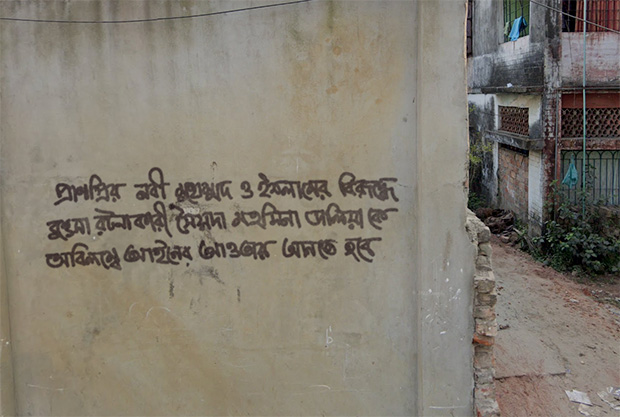 প্রাণপ্রিয় নবী মুহাম্মদ ও ইসলামের বিরুদ্ধে
কুৎসা রটনাকারী সৈয়দা মতমিনা তাসিয়া কে
অবিলম্বে আইনের আওতায় আনতে হবে